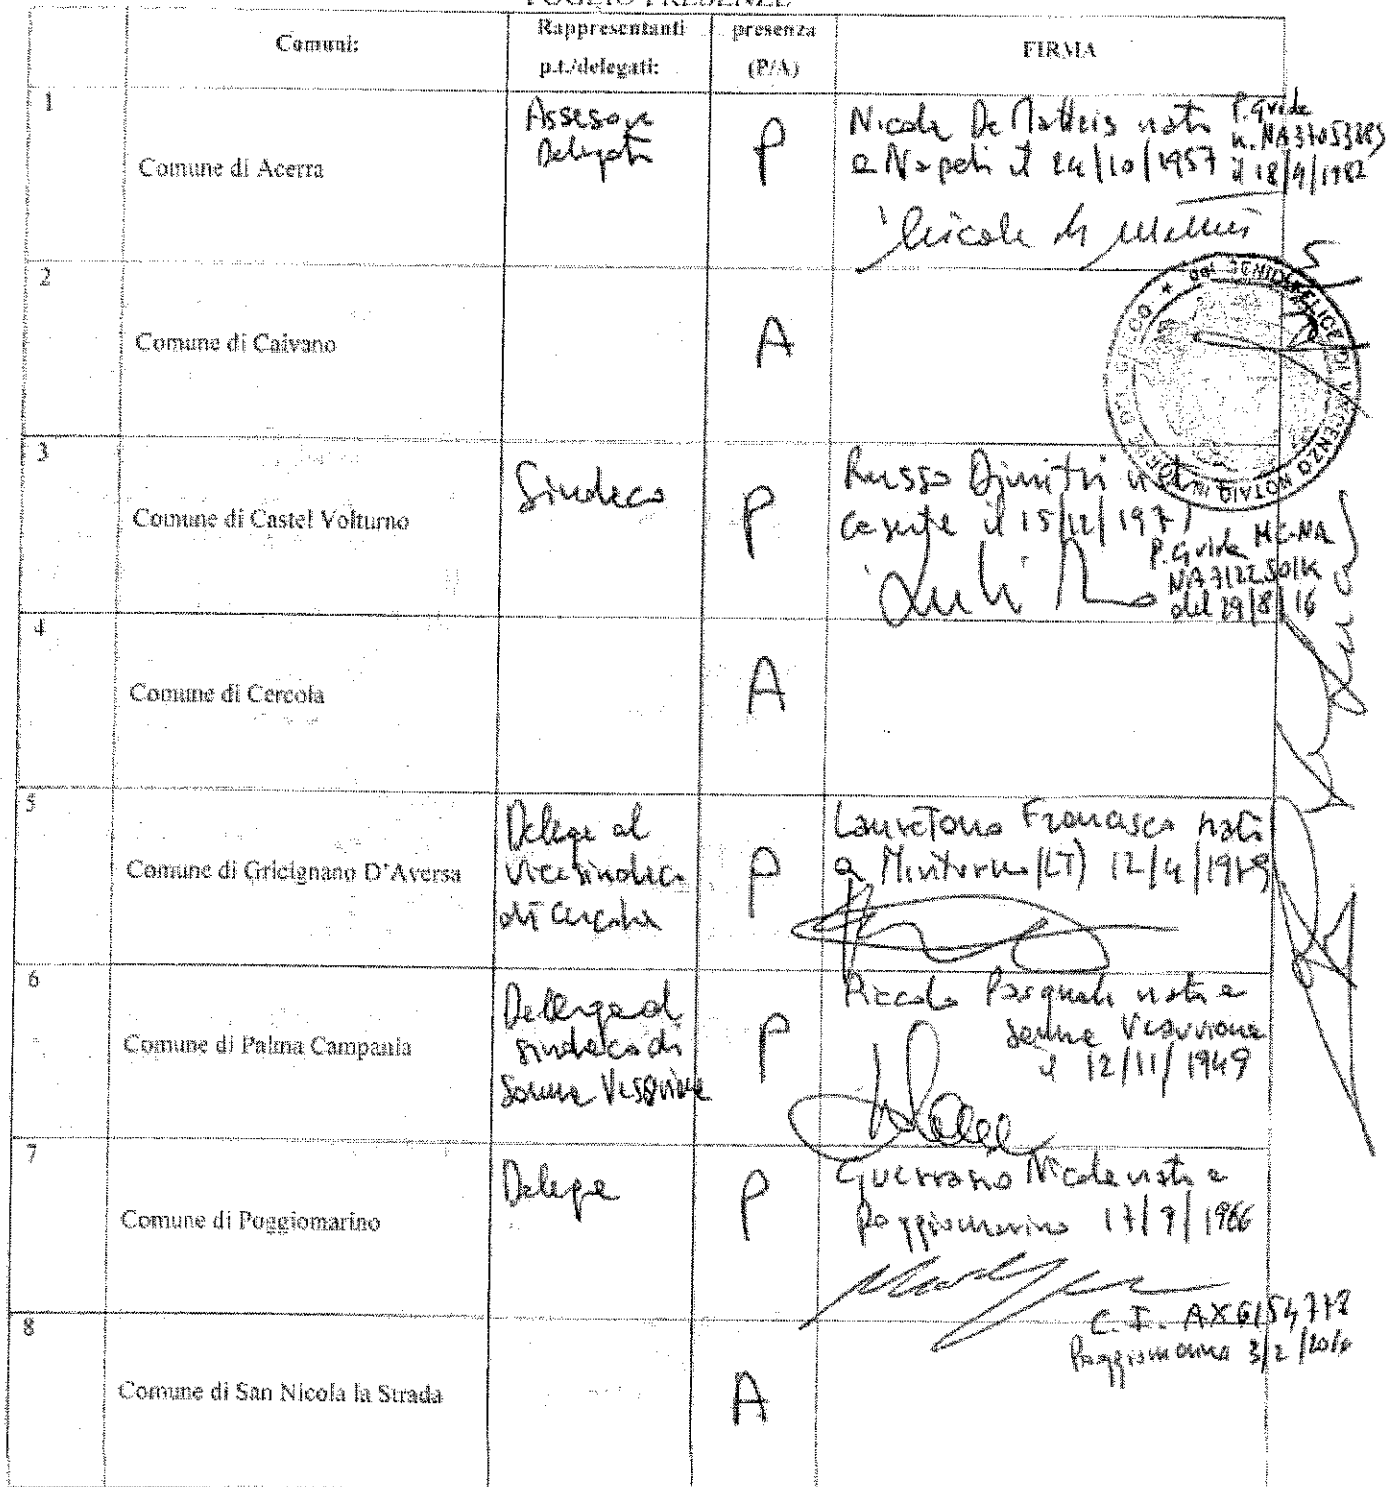 FOGLIO PRESENZE
Comuni:
Rappresentanti
p.t./delegati:
presenza
(P/A)
FIRMA
1
Comune di Acerra
Assessore
Delegato
P
Nicola De Matteis nato
a Napoli il 24/10/1957
P. Guida
il 18/4/1982
2
Comune di Caivano
A
3
Comune di Castel Volturno
Sindaco
P
Russo Dimitri nato
Caserta il 15/12/1971
P. Guida MC-NA
del 29/8/16
4
Comune di Cercola
A
5
Comune di Gricignano D'Aversa
Delega al
Vicesindaco
di Cercola
P
Francesco nato
a Minturno (LT) 12/4/19
6
Comune di Palma Campania
Delega al
sindaco di
Somma Vesuviana
P
Piccolo Pasquale nato a
Somma Vesuviana
il 12/11/1949
7
Comune di Poggiomarino
Delega
P
Guerrasio Nicola nato a
Poggiomarino 17/9/1966
C.I. AX6154772
Poggiomarino 3/2/2016
8
Comune di San Nicola la Strada
A